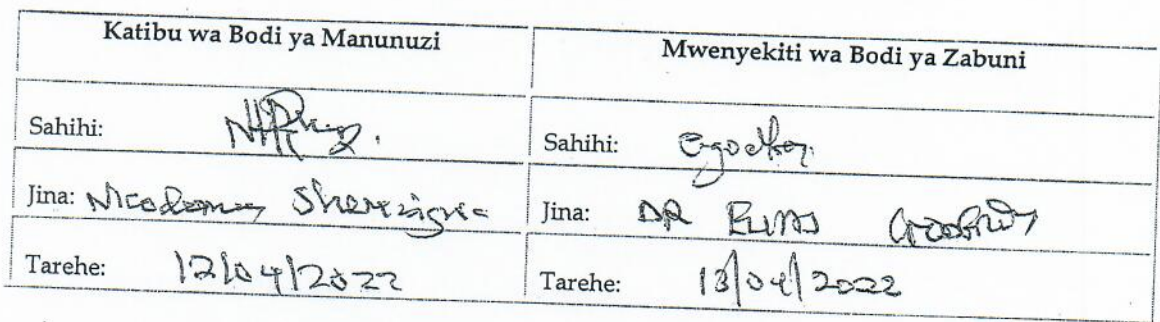 Katibu wa Bodi ya Manunuzi
Mwenyekiti wa Bodi ya Zabuni
Sahihi:
Sahihi:
Jina: Nicodemus
Jina: DR
Tarehe: 12/04/2022
Tarehe: 13/04/2022